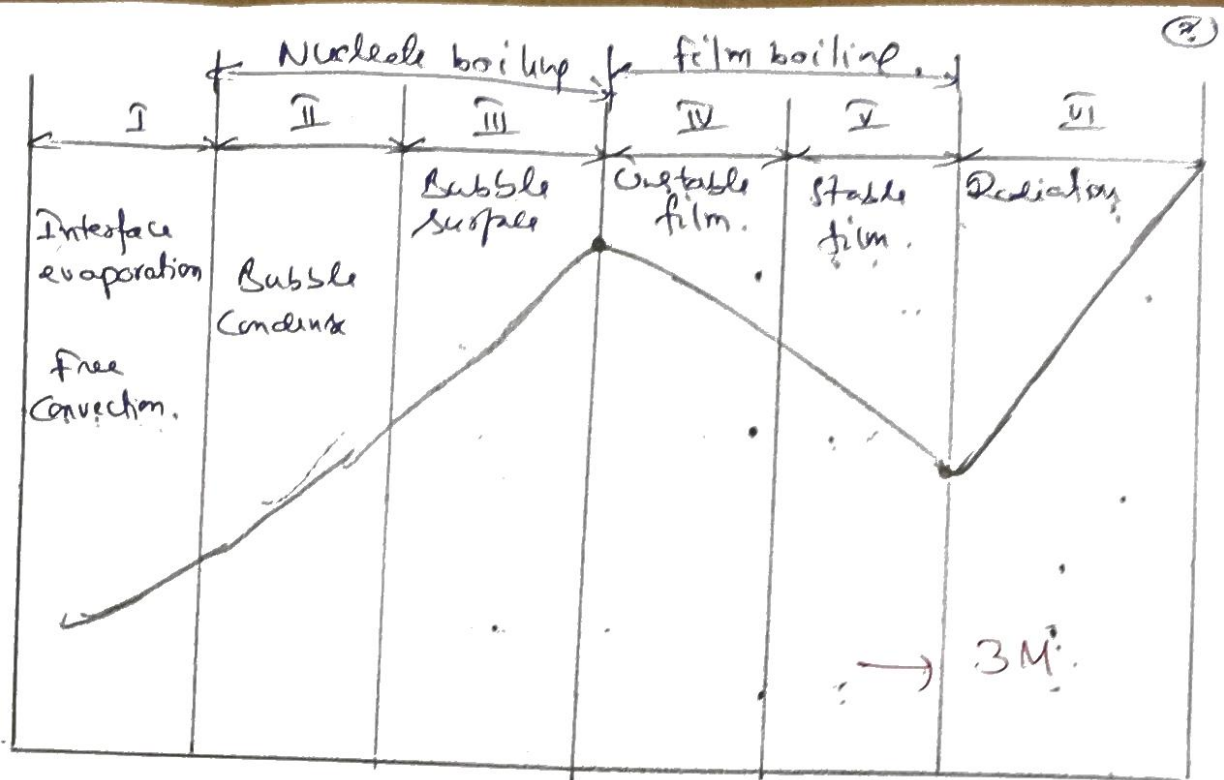 2
Nucleate boiling
film boiling.
I
II
III
IV
V
VI
Interface
evaporation
Free
Convection.
Bubble
Condense
Bubble
Surface
Unstable
film.
Stable
film.
Radiation
→ 3M.